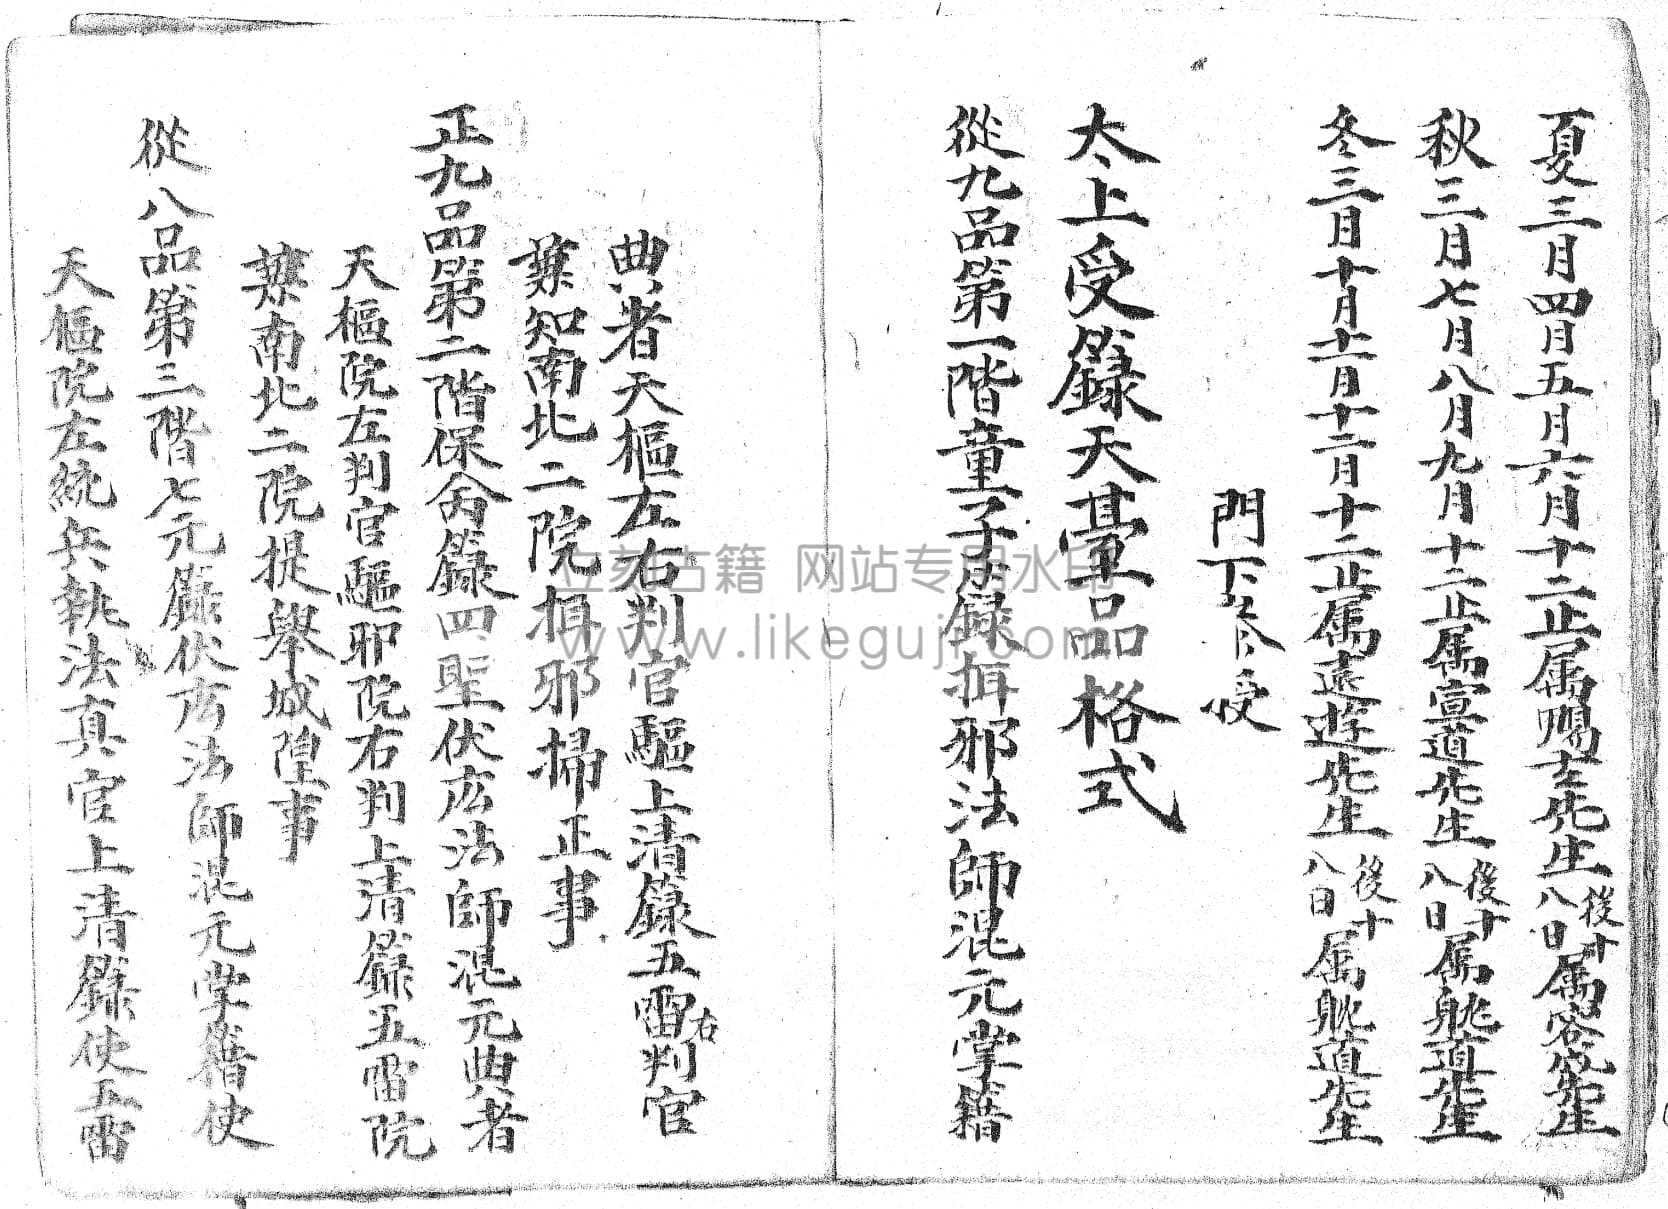 夏三月四月五月六月十二止属赐玄先生後十八日属容成先生
秋三月七月八月九月十二止属宣道先生後十八日属躭道先生
冬三月十月十一月十二月十二止属遠遊先生後十八日属躭道先生
門下 受
太上受籙天臺品格式
從九品第一階童子籙揖邪法師混元掌籍
典者天樞左右判官驅上清籙五雷右判官
兼知南北二院揖邪掃正事
正九品第二階保命籙四聖伏庅法師混元典者
天樞院左判官驅邪院右判上清籙五雷院
兼南北二院提舉城隍事
從八品第三階七元籙伏庅法師混元掌籍使
天樞院左統兵執法真官上清籙使五雷
立刻古籍 网站专用水印
www.likeguji.com